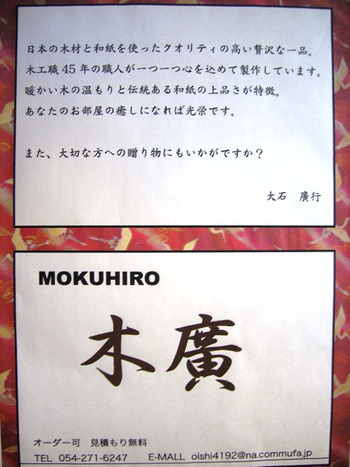 日本の木材と和紙を使ったクオリティの高い贅沢な一品。
木工職45年の職人が一つ一つ心を込めて製作しています。
暖かい木の温もりと伝統ある和紙の上品さが特徴。
あなたのお部屋の癒しになれば光栄です。
また、大切な方への贈り物にもいかがですか？
大石　廣行
MOKUHIRO
木廣
オーダー可　見積もり無料
TEL 054-271-6247　E-MALL oishi4192@na.commufa.jp